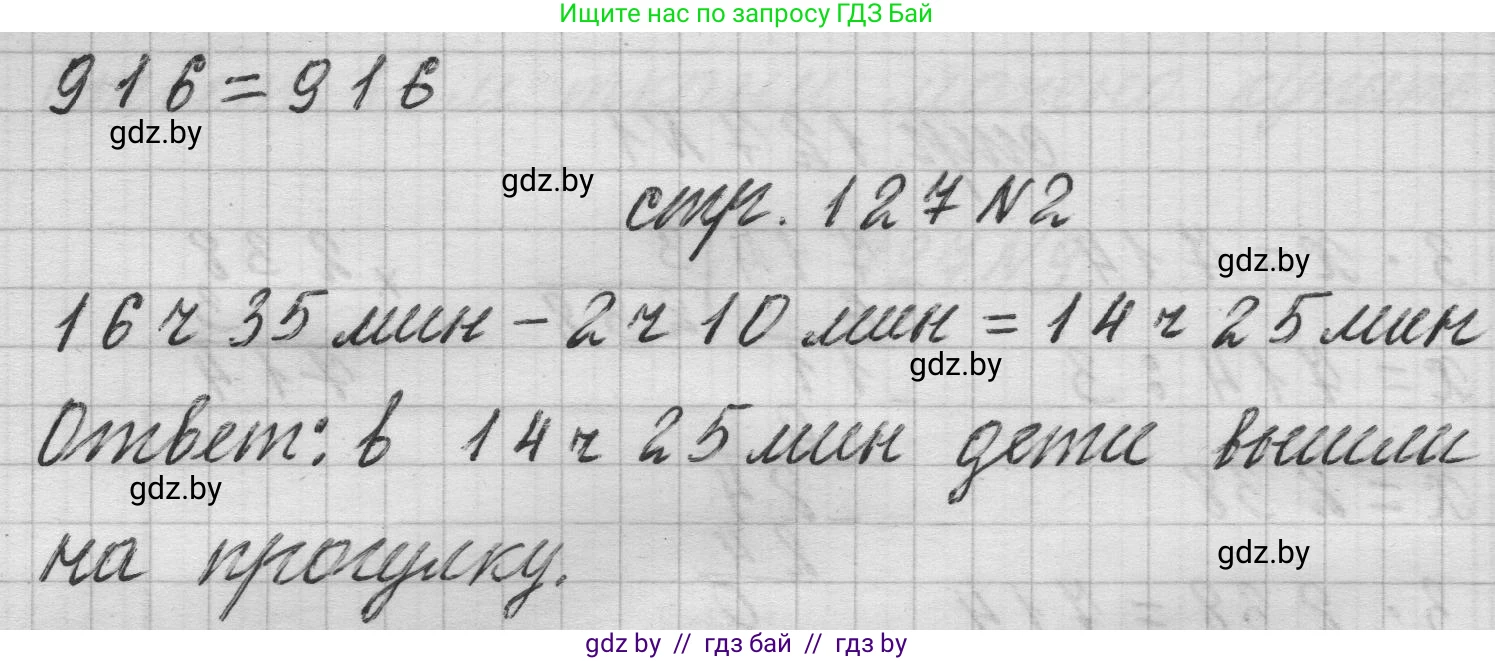 Ищите нас по запросу ГДЗ Бай
916=916
gdz.by
gdz.by
стр. 127 N2
gdz.by
16 ч 35 мин - 2 ч 10 мин = 14 ч 25 мин
gdz.by
Ответ: в 14 ч 25 мин дети вышли
gdz.by
на прогулку.
gdz.by
gdz.by // гдз бай // гдз by